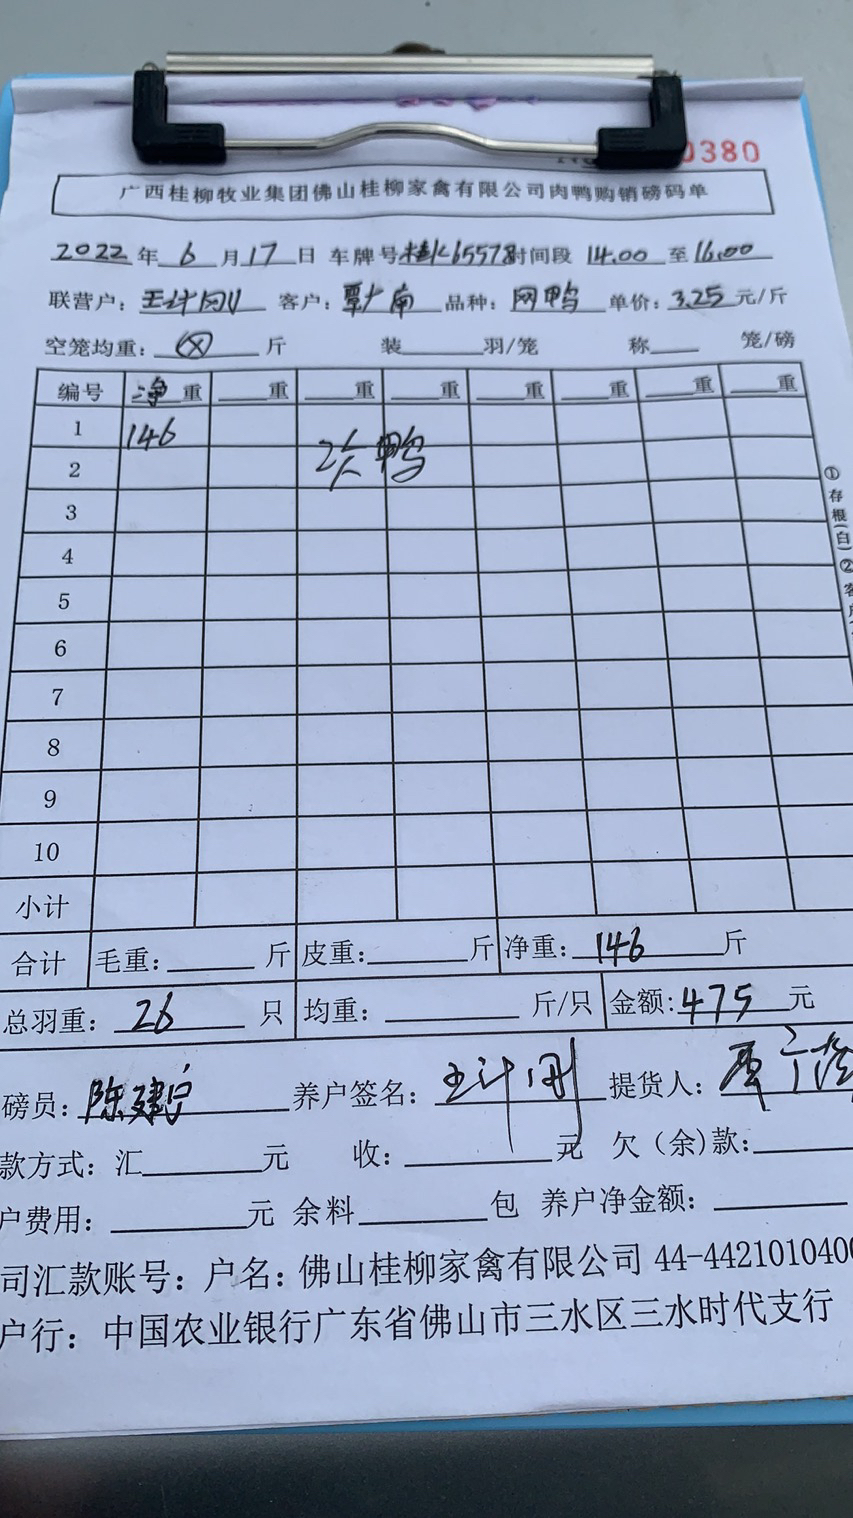 0380
广西桂柳牧业集团佛山桂柳家禽有限公司肉鸭购销磅码单
2022 年 6 月 17 日 车牌号 桂K65578 时间段 14.00 至 16.00
联营户: 王计 客户: 覃广南 品种: 网鸭 单价: 3.25 元/斤
空笼均重: 斤 装 羽/笼 称 笼/磅
编号 净重 重 重 重 重 重 重 重
1 146
2 次鸭
3
4
5
6
7
8
9
10
小计
合计 毛重: 斤 皮重: 斤 净重: 146 斤
总羽重: 26 只 均重: 斤/只 金额: 475 元
磅员: 陈建 养户签名: 王计 提货人: 覃广
款方式: 汇 元 收: 元 欠(余)款:
户费用: 元 余料 包 养户净金额:
司汇款账号: 户名: 佛山桂柳家禽有限公司 44-4421010400
户行: 中国农业银行广东省佛山市三水区三水时代支行
①存根(白)②客